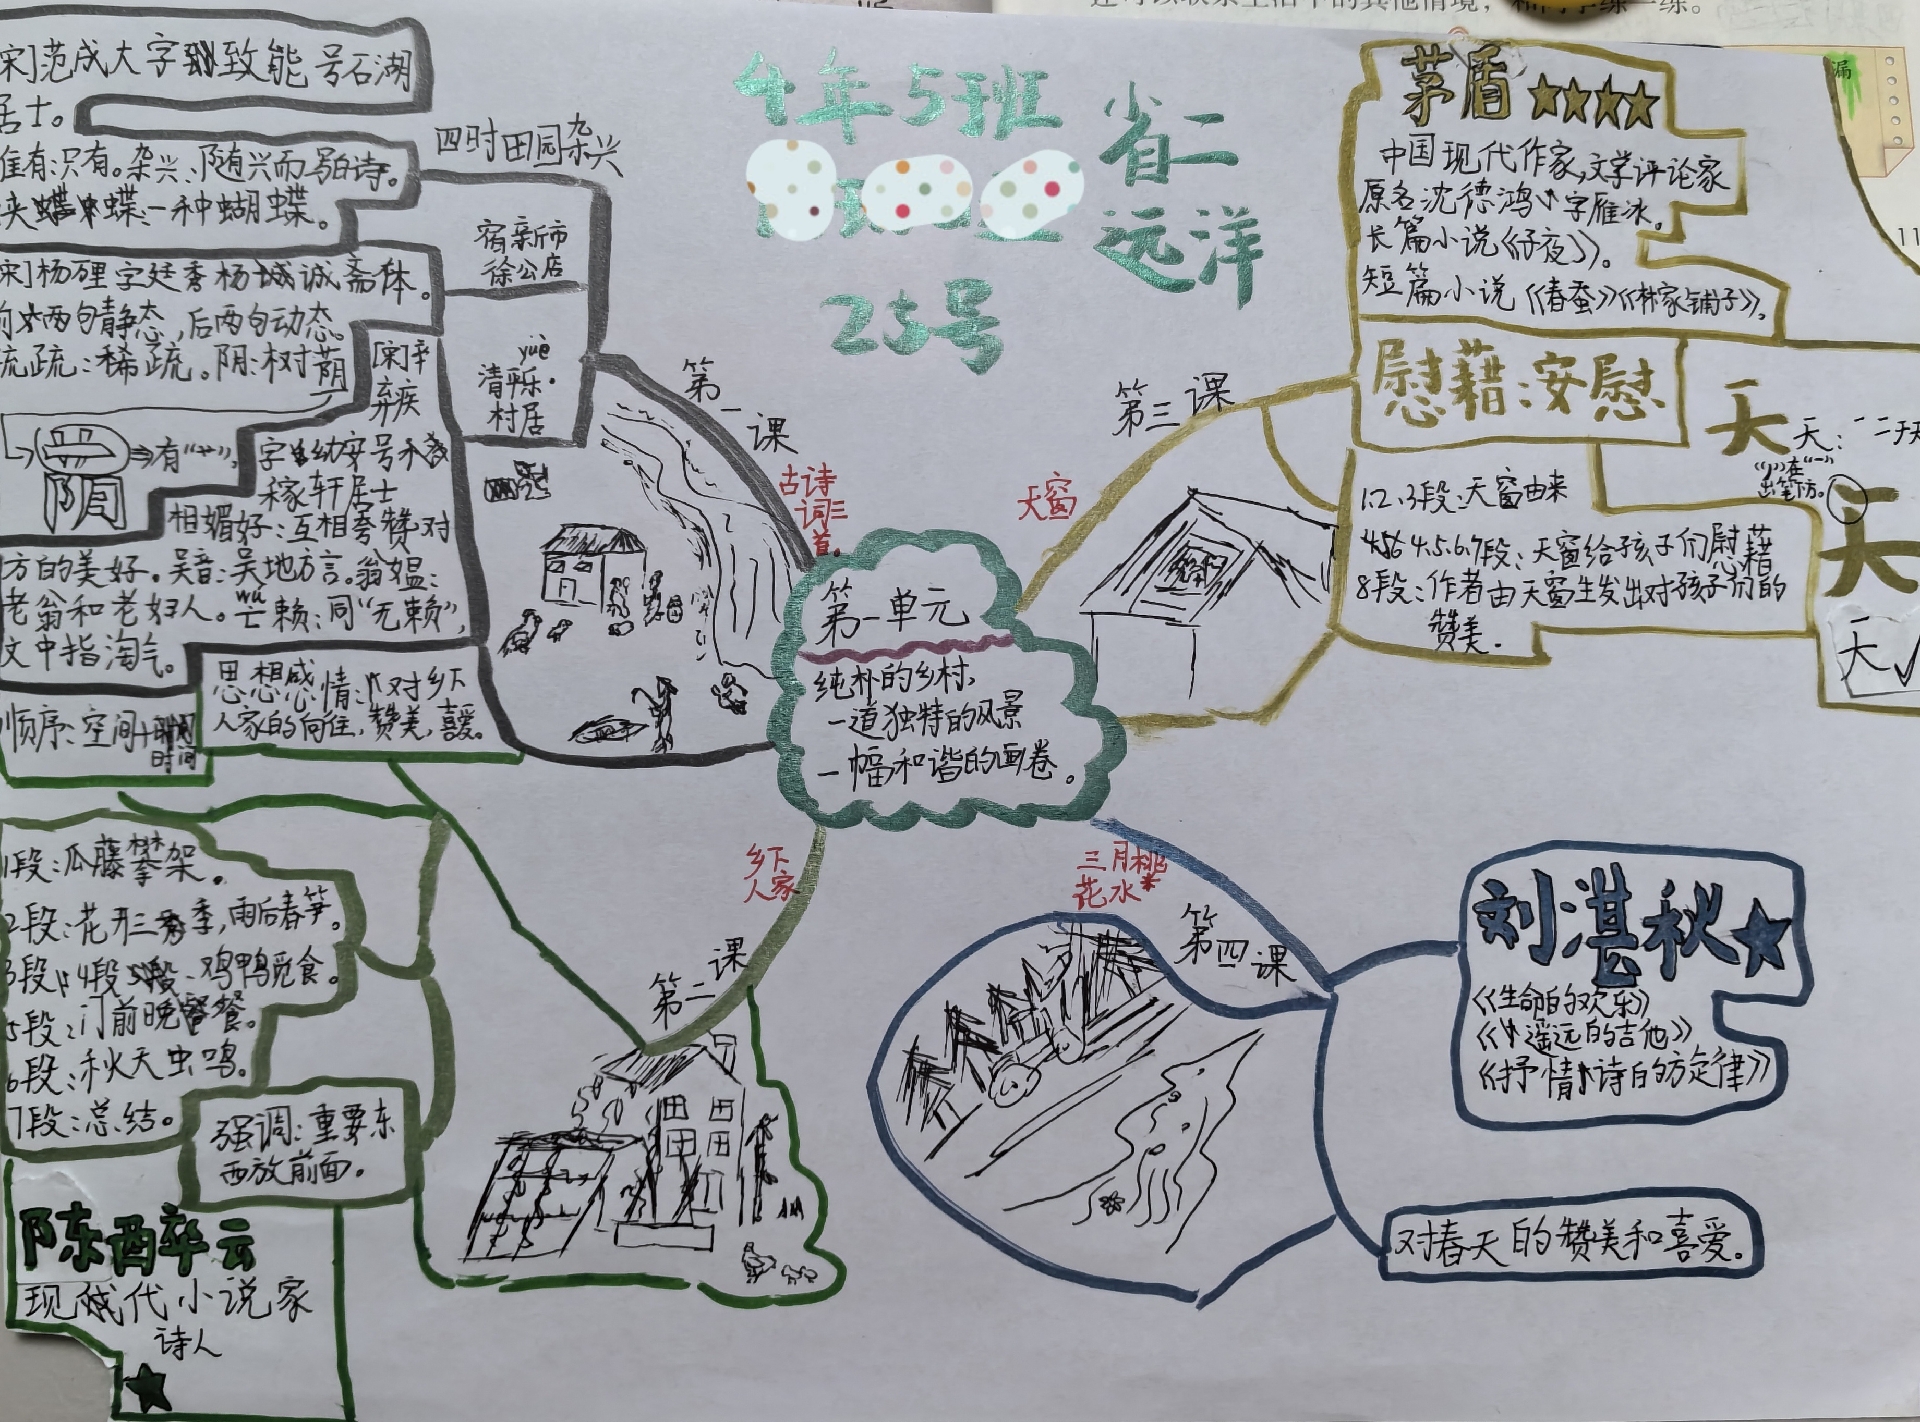 4年5班
25号
省二
远洋
第一单元
纯朴的乡村,
一道独特的风景
一幅和谐的画卷。
第一课
古诗
词三
首。
四时田园杂兴
宿新市
徐公店
yuè
清平乐·
村居
宋]范成大字致能号石湖
居士。
惟有:只有。杂兴:随兴而写的诗。
蝶:一种蝴蝶。
宋]杨理字廷秀杨诚斋体。
两句静态,后两句动态。
疏:稀疏。阴:树荫
有“艹”,
阴
[宋]辛
弃疾
字幼安号
稼轩居士
相媚好:互相夸赞对
方的美好。吴音:吴地方言。翁媪:
老翁和老妇人。亡赖:同“无赖”,
wú
文中指淘气。
思想感情:对乡下
人家的向往,赞美,喜爱。
顺序:空间+
时间
乡下
人家
第二课
1段:瓜藤攀架。
2段:花开三季,雨后春笋。
3段、4段、鸡鸭觅食。
5段:门前晚餐。
6段:秋天虫鸣。
7段:总结。
强调:重要东
西放前面。
陈醉云
现代小说家
诗人
第三课
天窗
茅盾
中国现代作家,文学评论家
原名沈德鸿字雁冰。
长篇小说《子夜》。
短篇小说《春蚕》《林家铺子》。
慰藉:安慰
1.2.3段:天窗由来
4.5.6.7段:天窗给孩子们慰藉
8段:作者由天窗生发出对孩子们的
赞美.
天
天
天√
三月桃
花水*
第四课
刘湛秋
《生命的欢乐》
《遥远的吉他》
《抒情诗的旋律》
对春天的赞美和喜爱。
漏
11